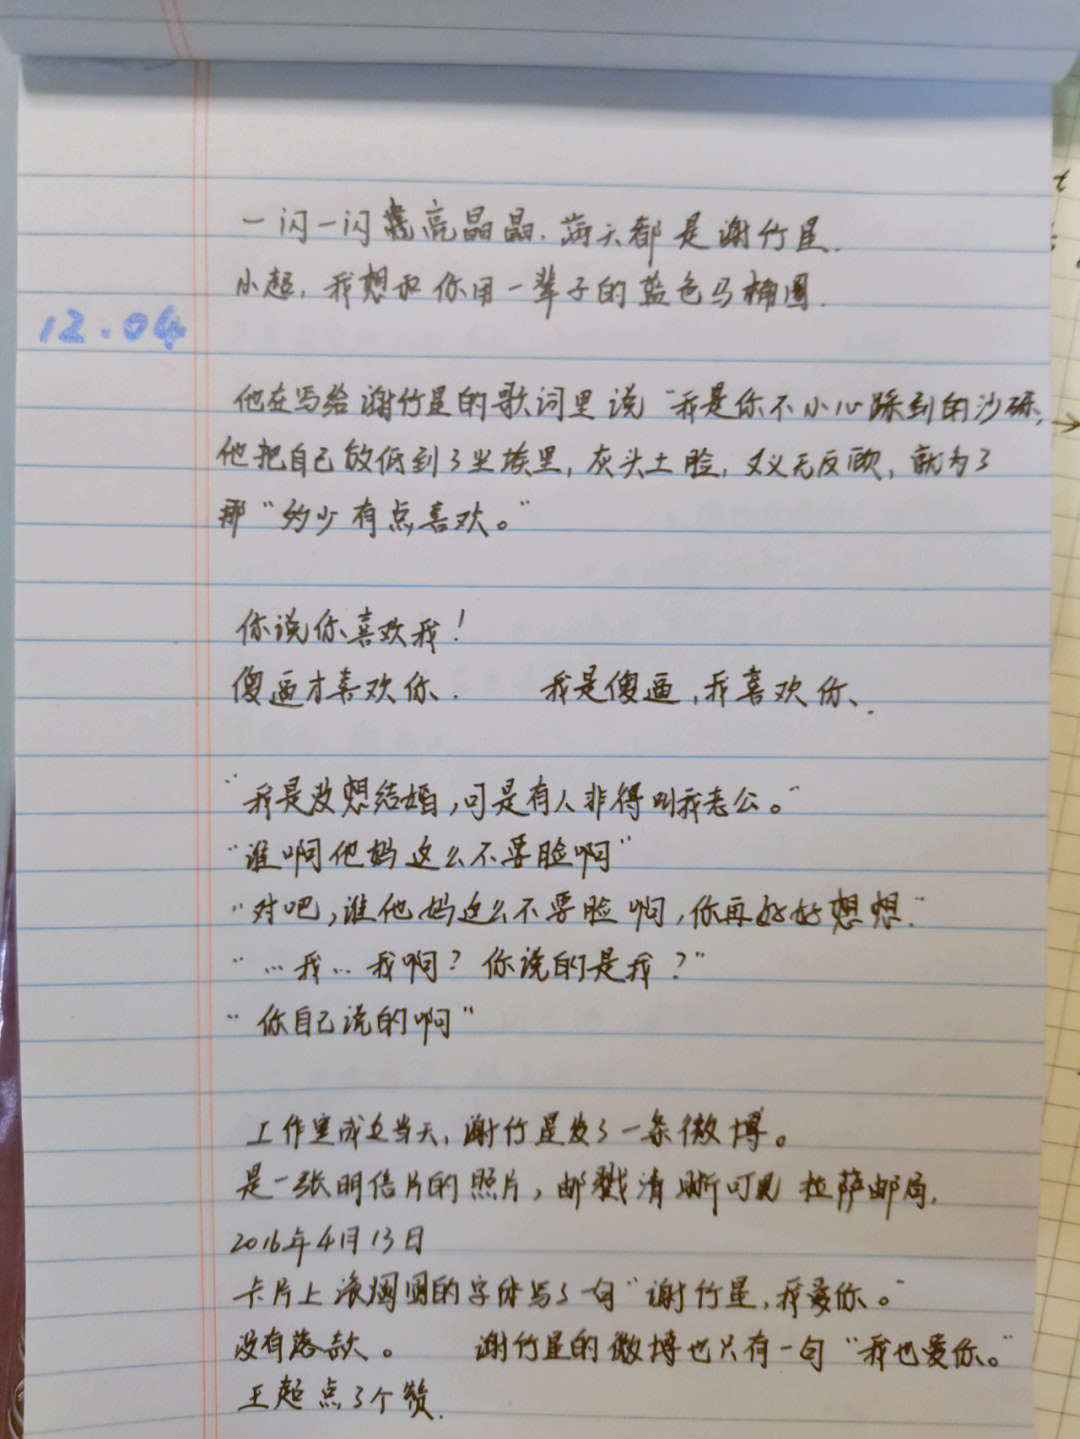 一闪一闪亮晶晶.满天都是谢竹星.
小超,我想和你用一辈子的蓝色马桶圈.
12.04
他在写给谢竹星的歌词里说"我是你不小心踩到的沙砾,
他把自己放低到了尘埃里,灰头土脸,义无反顾,就为了
那"约少有点喜欢。"
你说你喜欢我!
傻逼才喜欢你. 我是傻逼,我喜欢你.
"我是没想结婚,可是有人非得叫我老公。"
"谁啊他妈这么不要脸啊"
"对吧,谁他妈这么不要脸啊,你再好好想想."
"…我…我啊?你说的是我?"
"你自己说的啊"
工作室成立当天,谢竹星发了一条微博。
是一张明信片的照片,邮戳清晰可见 拉萨邮局.
2016年4月13日
卡片上滚烟圆的字体写了一句"谢竹星,我爱你。"
没有落款。 谢竹星的微博也只有一句"我也爱你。"
王超点了个赞.